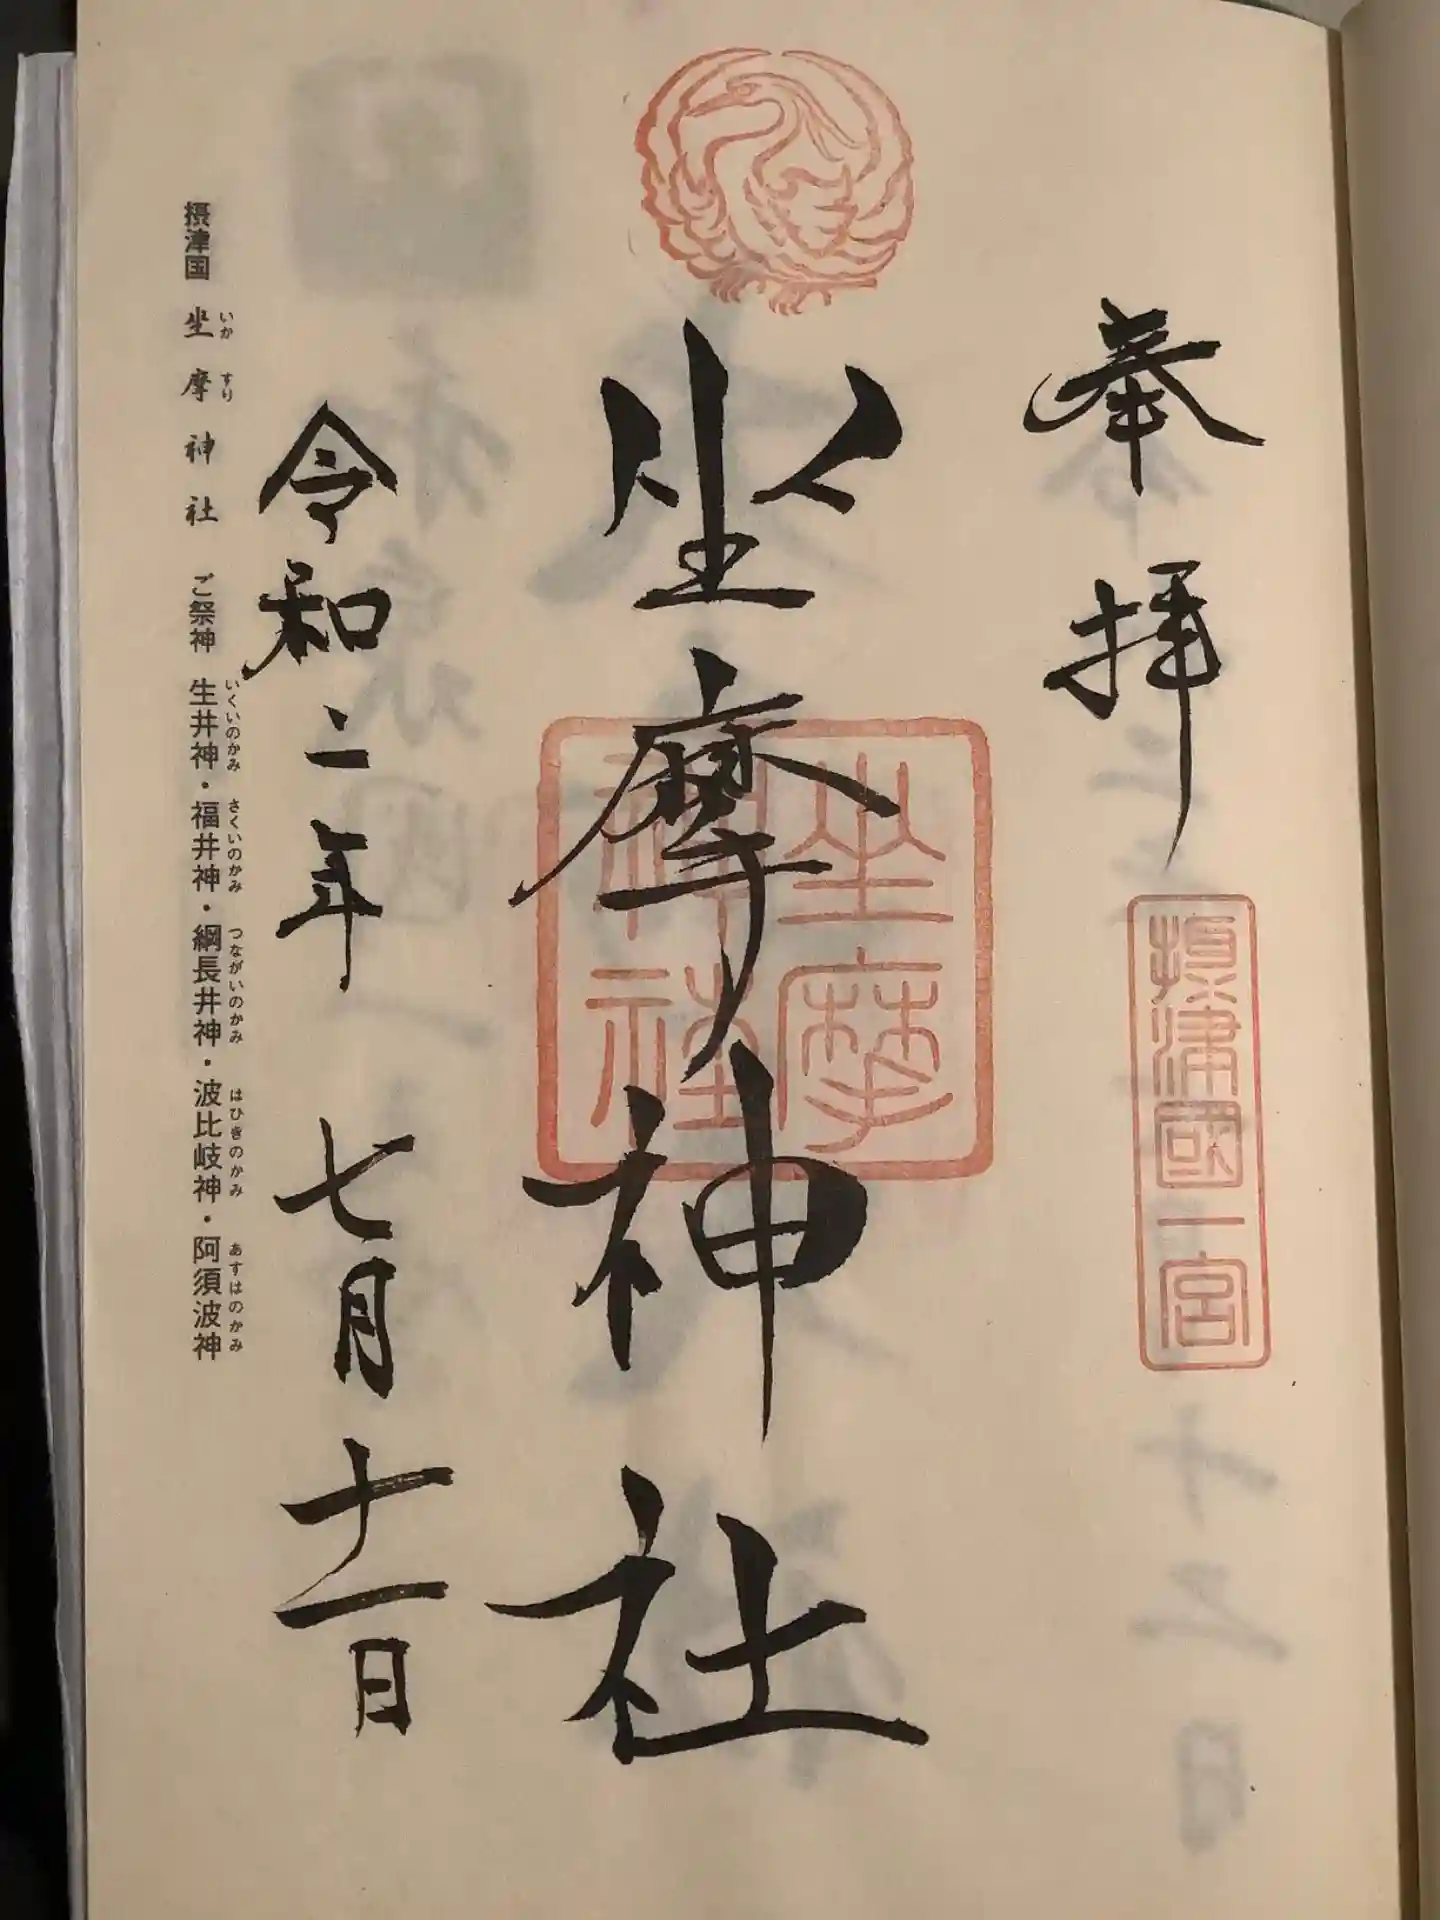 奉拝
摂津國一宮
坐摩神社
坐摩神社
令和二年 七月十一日
摂津国 坐摩神社 ご祭神 生井神・福井神・綱長井神・波比岐神・阿須波神
いか すり いくいのかみ さくいのかみ つながいのかみ はひきのかみ あすはのかみ